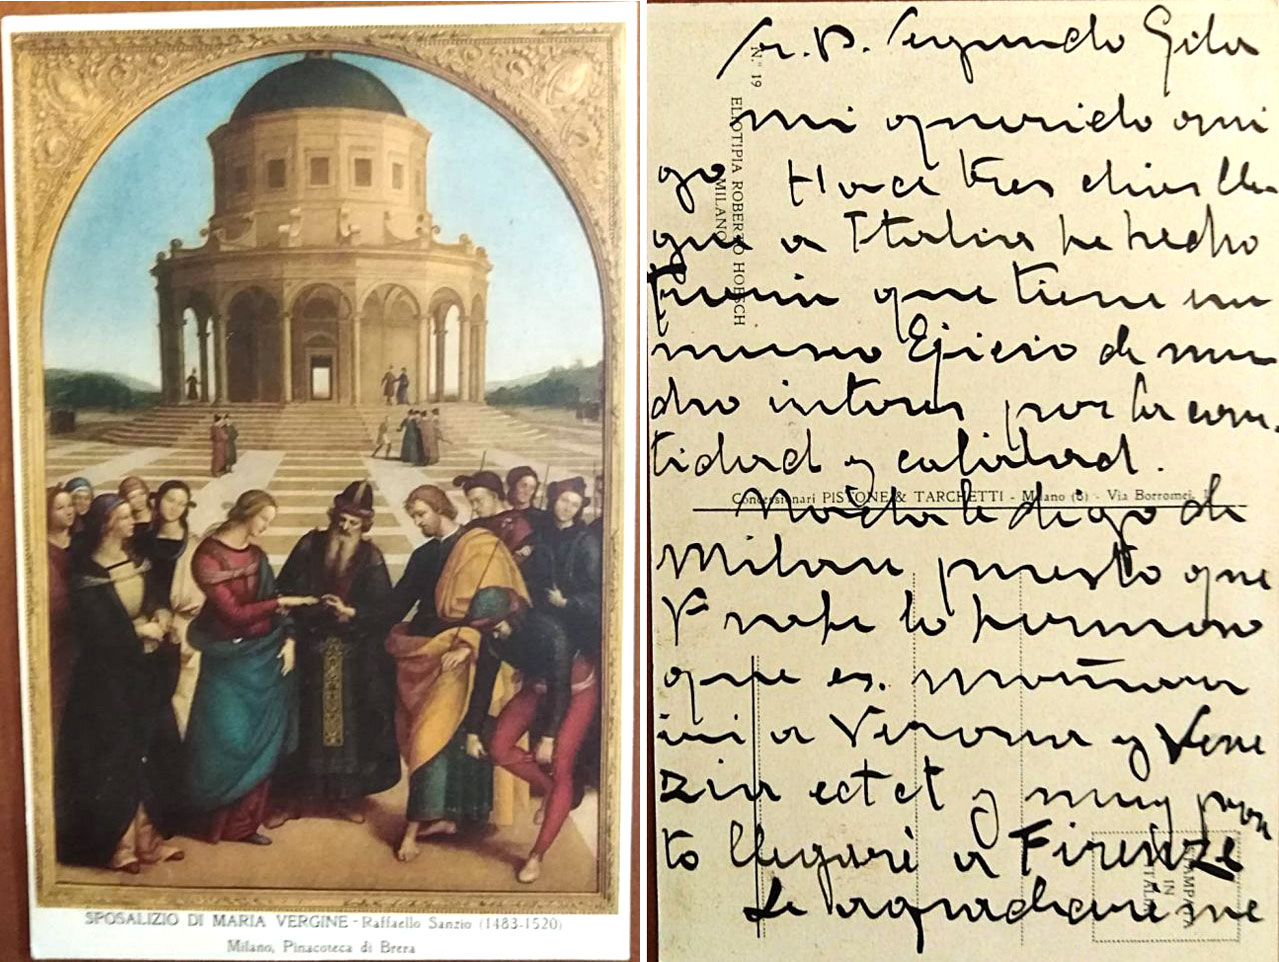 SPOSALIZIO DI MARIA VERGINE - Raffaello Sanzio (1483-1520)
Milano, Pinacoteca di Brera
Sr. D. Segundo Gila
mi querido ami
go Hace tres dias lle
gue a Italia he hecho
Turin que tiene un
museo Ejicio de mu
cho interes por la can
tidad y calidad.
Nada le digo de
Milan puesto que
V sabe lo hermoso
que es. mañana
iré a Verona y Vene
zia ectet y muy pron
to llegaré a Firenze
Le agradeceré me
N.º 19
ELIOTIPIA ROBERTO HOESCH
MILANO
Concessionari PISTONE & TARCHETTI - Milano (8) - Via Borromei,
STAMPATA
IN
ITALIA